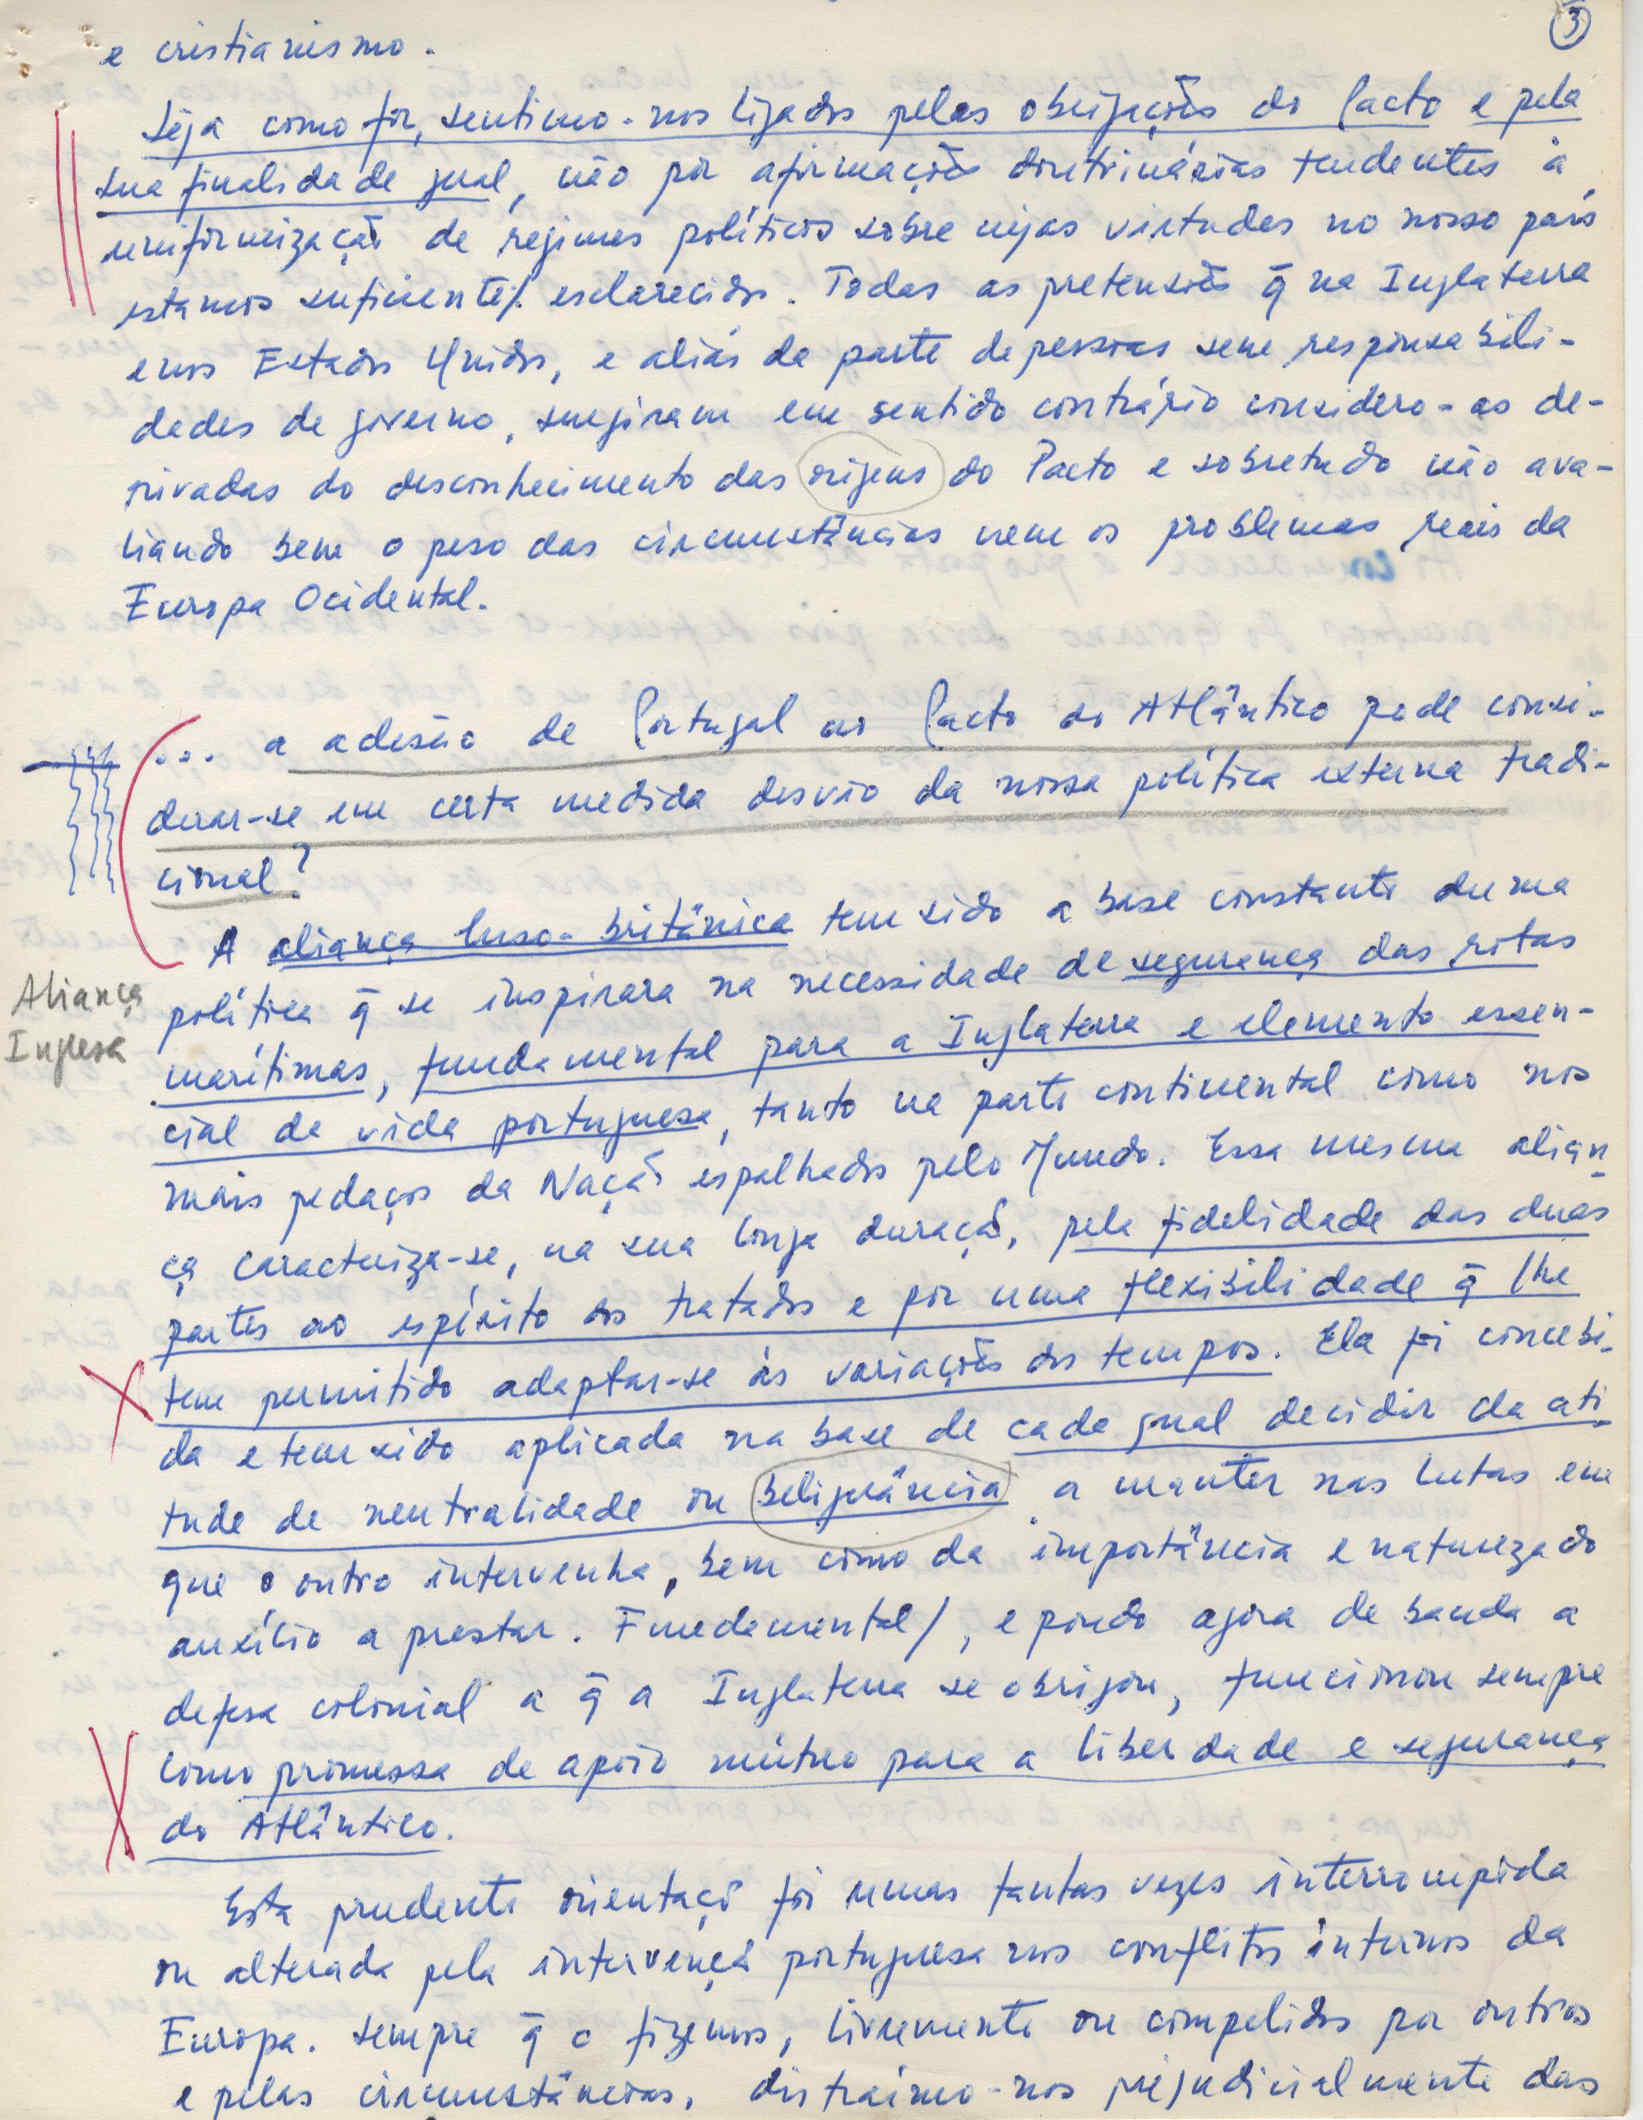 3
e cristianismo.
Seja como fôr, sentimo-nos ligados pelas obrigações do Pacto e pela
sua finalidade geral, não por afirmações doutrinárias tendentes à
uniformização de regimes políticos sobre cujas virtudes no nosso país
estamos suficiente/. esclarecidos. Todas as pretensões q̃ na Inglaterra
e nos Estados Unidos, e aliás da parte de pessoas sem responsabili-
dades de governo, surgiram em sentido contrário considero-as de-
rivadas do desconhecimento das origens do Pacto e sobretudo não ava-
liando bem o peso das circunstâncias nem os problemas reais da
Europa Ocidental.
... a adesão de Portugal ao Pacto do Atlântico pode consi-
derar-se em certa medida desvio da nossa política externa tradi-
cional?
A aliança luso-britânica tem sido a base constante duma
Aliança
Inglesa
política q̃ se inspirara na necessidade de segurança das rotas
marítimas, fundamental para a Inglaterra e elemento essen-
cial da vida portuguesa, tanto na parte continental como nos
mais pedaços da Nação espalhados pelo Mundo. Essa mesma alian-
ça caracteriza-se, na sua longa duração, pela fidelidade das duas
partes ao espírito dos tratados e por uma flexibilidade q̃ lhe
tem permitido adaptar-se às variações dos tempos. Ela foi concebi-
da e tem sido aplicada na base de cada qual decidir da ati-
tude de neutralidade ou beligerância a manter nas lutas em
que o outro intervenha, bem como da importância e natureza do
auxílio a prestar. Fundamental/, e pondo agora de banda a
defesa colonial a q̃ a Inglaterra se obrigou, funcionou sempre
como promessa de apoio mútuo para a liberdade e segurança
do Atlântico.
Esta prudente orientação foi umas tantas vezes interrompida
ou alterada pela intervenção portuguesa nos conflitos internos da
Europa. Sempre q̃ o fizemos, livremente ou compelidos por outros
e pelas circunstâncias, distraímo-nos prejudicialmente das